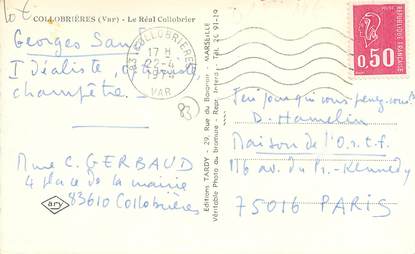 COLLOBRIÈRES (Var) - Le Réal Collobrier
Georges Sand
Idéaliste,
champêtre.
Mme C. GERBAUD
4 place de la mairie
83610 Collobrières
83
83 COLLOBRIERES
17 H
22-4
VAR
Editions TARDY - 29, Rue du Baignoir - MARSEILLE
Véritable Photo au bromure - Repr. Interd. - Tél. 20 91-19
ary
POSTES
0,50
REPUBLIQUE FRANÇAISE
qui vous
D. Hamelin
Maison de l'O.R.T.F.
116 av. du Pr. Kennedy
75016 PARIS